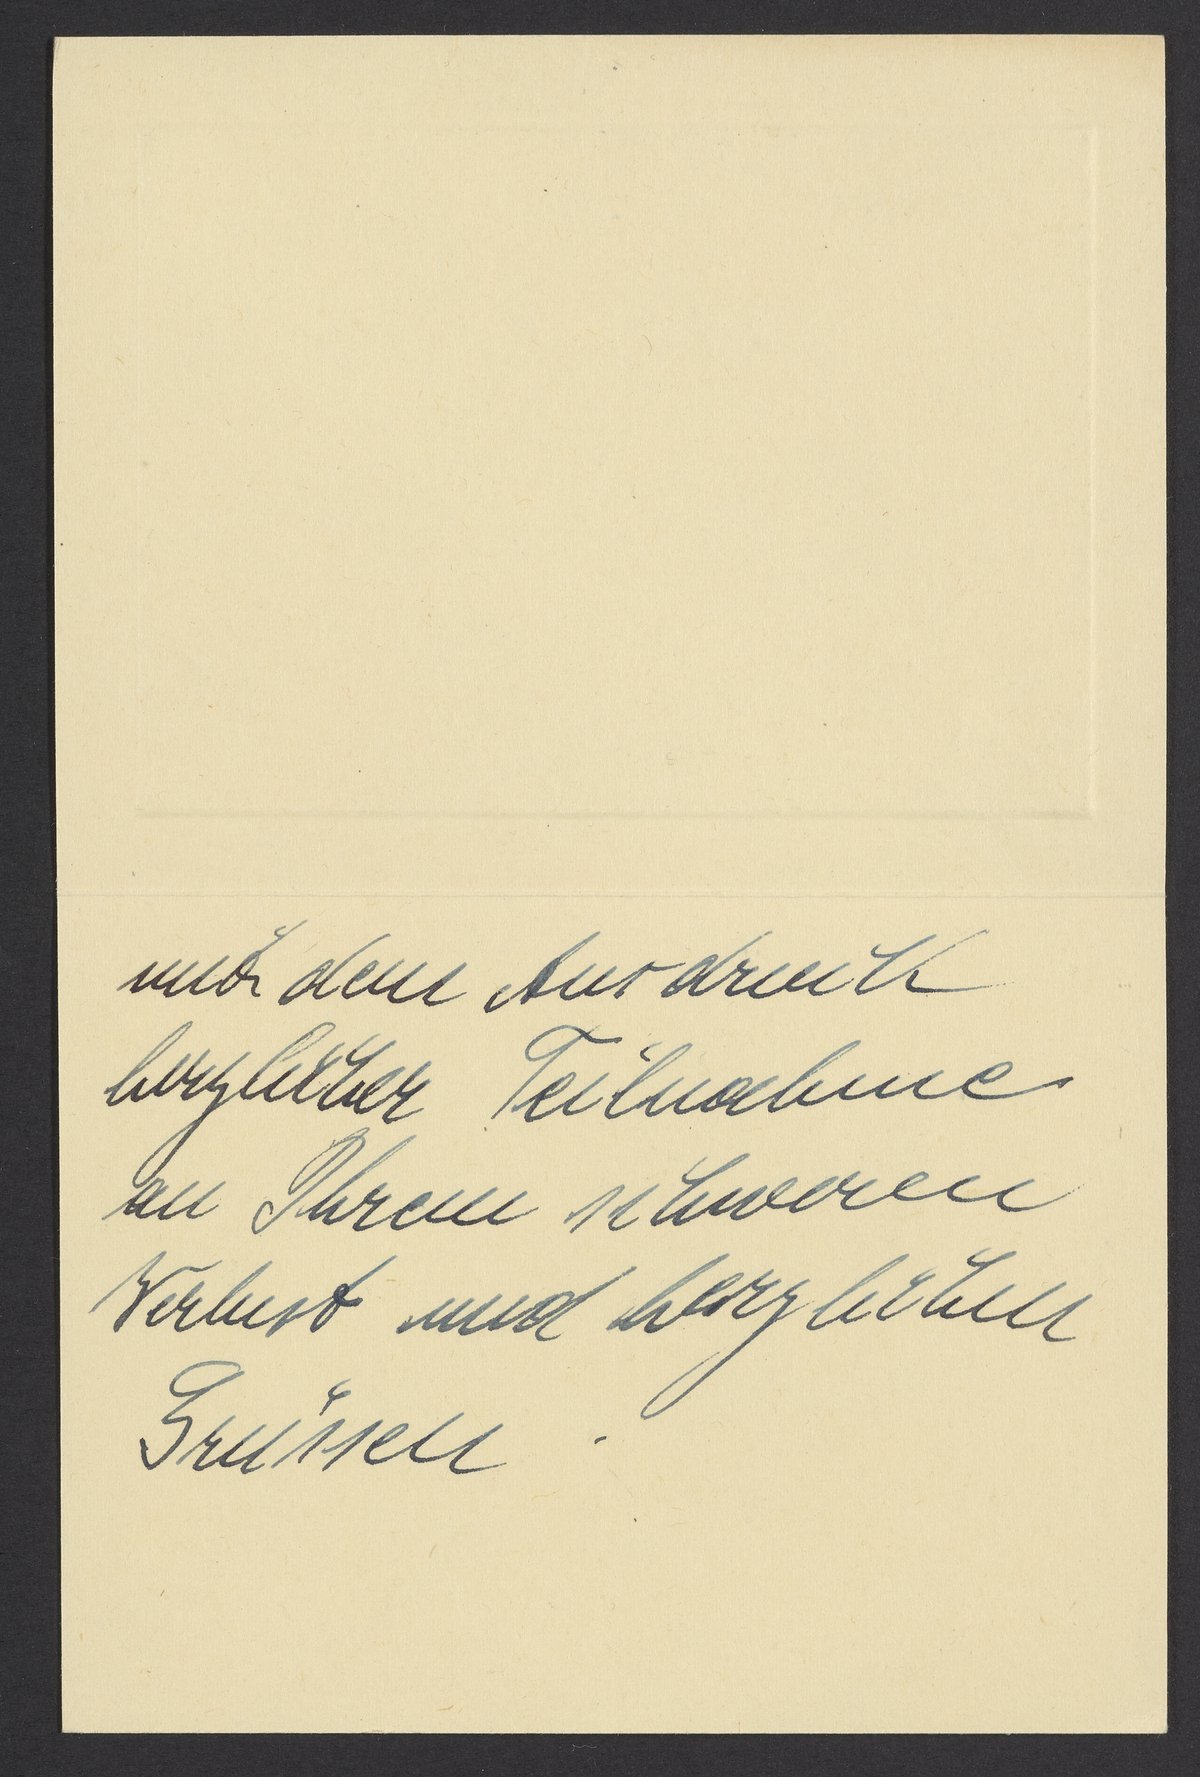 mit dem Ausdruck
herzlicher Teilnahme
an Ihrem schweren
Verlust und herzlichen
Grüssen.